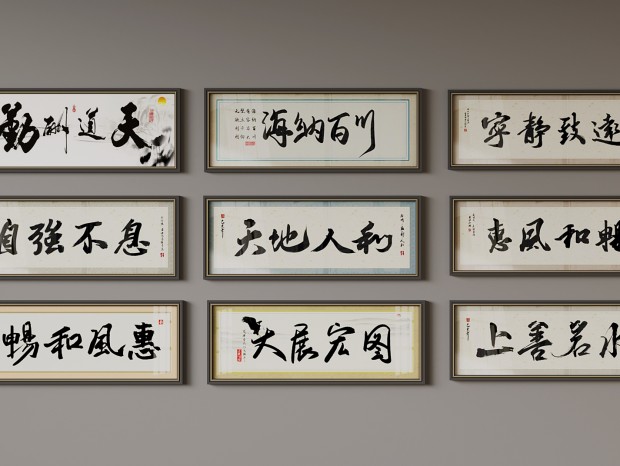 天道酬勤
海纳百川
寧静致遠
自強不息
天地人和
惠風和暢
惠風和暢
大展宏图
上善若水